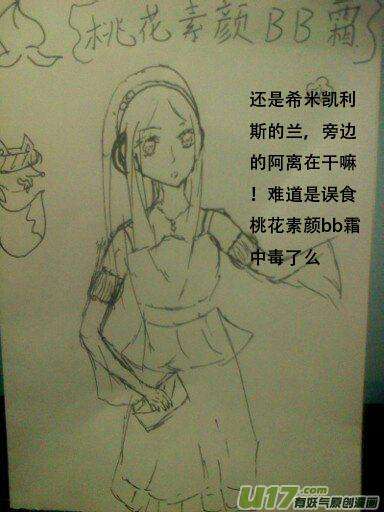 桃花素颜BB霜
还是希米凯利
斯的兰，旁边
的阿离在干嘛
！难道是误食
桃花素颜bb霜
中毒了么
U17.com
有妖气原创漫画